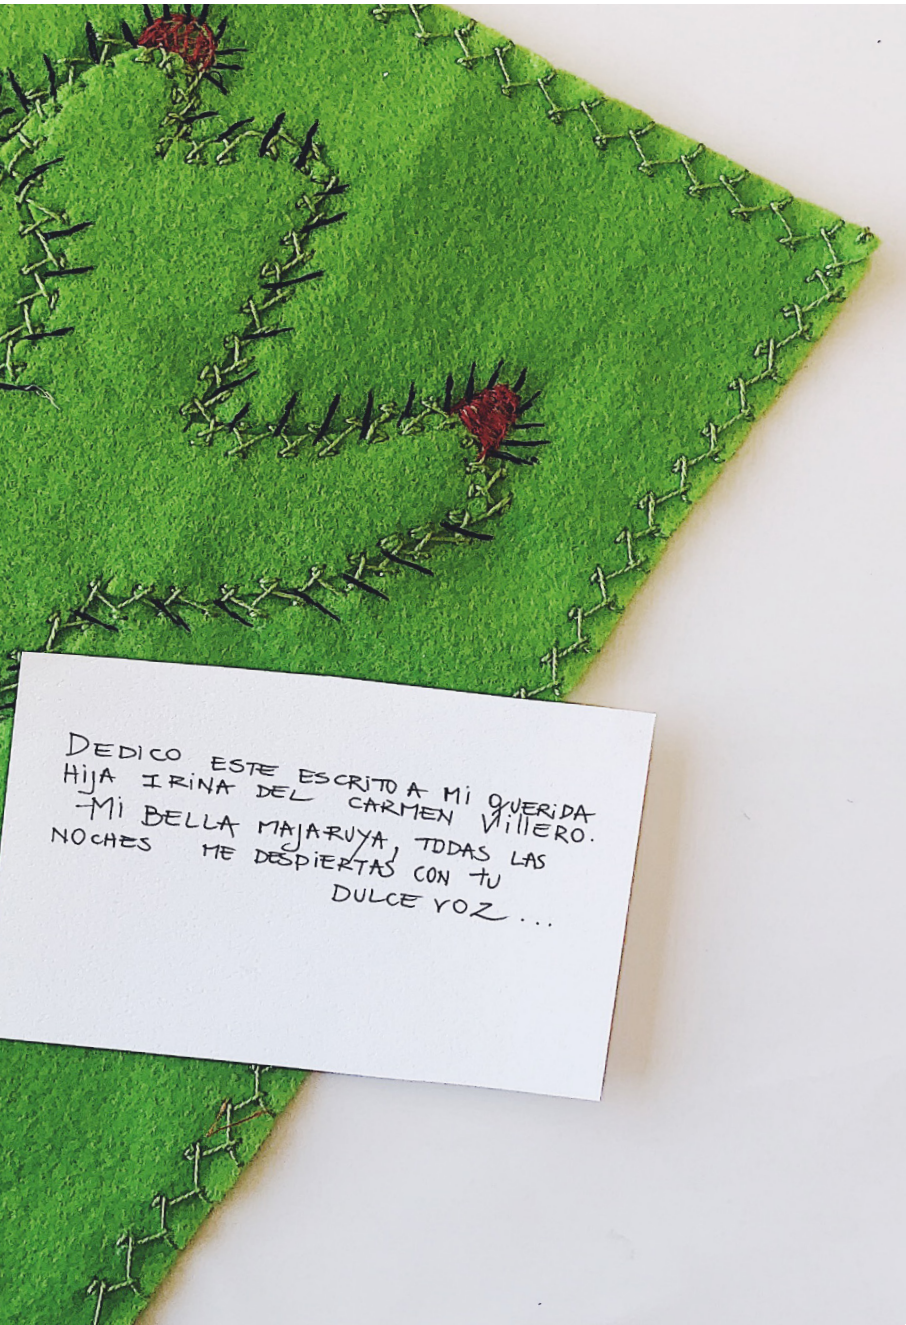 DEDICO ESTE ESCRITO A Mi QUERIDA
HijA IRiNA DEL CARMEN VillERO.
Mi BELLA MAJARUYA, TODAS LAS
NOCHES ME DESPiERTAS CON tu
DULCE VOZ...